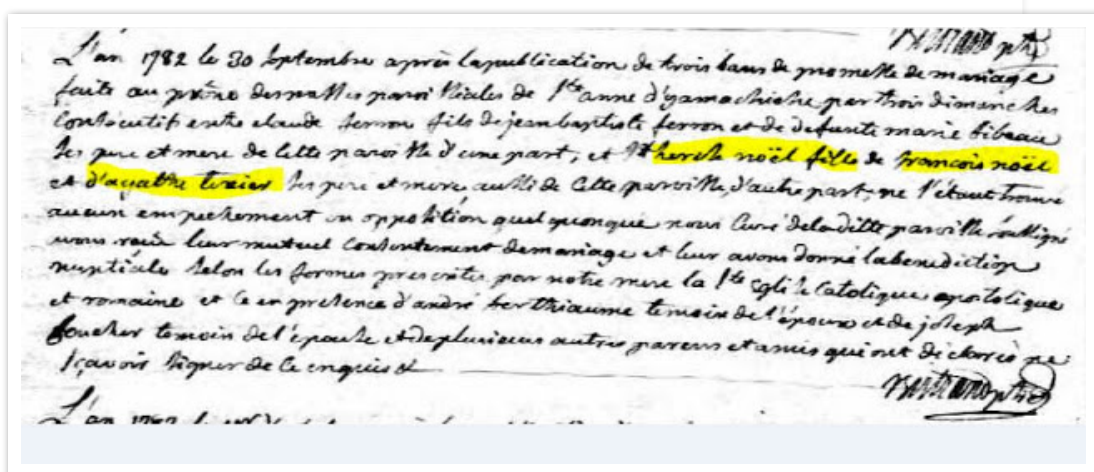 Bertrand ptre
L'an 1782 le 30 Septembre après la publication de trois bans de promesse de mariage
faite au prône des messes paroissiales de Ste anne d'yamachiche par trois dimanches
Consécutifs entre claude ferron fils de jean baptiste ferron et de defunte marie sibeau
ses pere et mere de cette paroisse d'une part, et therese noël fille de francois noël
et d'agathe texier ses pere et mere aussi de cette paroisse, d'autre part, ne s'étant trouvé
aucun empechement ou opposition quelquonque nous Curé de la ditte paroisse soussigné
avons reçu leur mutuel Consentement de mariage et leur avons donné la benediction
nuptiale selon les formes prescrites par notre mere la Ste eglise Catolique apostolique
et romaine et ce en presence d'andré berthiaume temoin de l'époux et de joseph
foucher temoin de l'épouse et de plusieurs autres parens et amis qui ont declarés ne
sçavoir signer de ce enquis
Bertrand ptre
L'an 1782